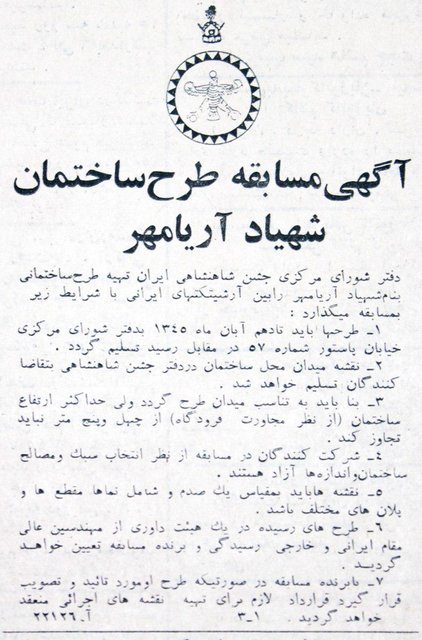 آگهی مسابقه طرح ساختمان
شهیاد آریامهر
دفتر شورای مرکزی جشن شاهنشاهی ایران تهیه طرح ساختمانی
بنام شهیاد آریامهر رابین آرشیتکتهای ایرانی با شرایط زیر
بمسابقه میگذارد :
۱ـ طرحها باید تادهم آبان ماه ۱۳۴۵ بدفتر شورای مرکزی
خیابان پاستور شماره ۵۷ در مقابل رسید تسلیم گردد .
۲ـ نقشه میدان محل ساختمان دردفتر جشن شاهنشاهی بتقاضا
کنندگان تسلیم خواهد شد .
۳ـ بنا باید به تناسب میدان طرح گردد ولی حداکثر ارتفاع
ساختمان (از نظر مجاورت فرودگاه) از چهل وپنج متر نباید
تجاوز کند .
٤ـ شرکت کنندگان در مسابقه از نظر انتخاب سبک ومصالح
ساختمان واندازه‌ها آزاد هستند .
۵ـ نقشه هاباید بمقیاس یک صدم و شامل نماها مقطع ها و
پلان های مختلف باشد .
۶ـ طرح های رسیده در یک هیئت داوری از مهندسین عالی
مقام ایرانی و خارجی رسیدگی و برنده مسابقه تعیین خواهد
گردید .
۷ـ بابرنده مسابقه در صورتیکه طرح اومورد تائید و تصویب
قرار گیرد قرارداد لازم برای تهیه نقشه های اجرائی منعقد
خواهد گردید . ۱-۳ آ.۲۲۱۲۶